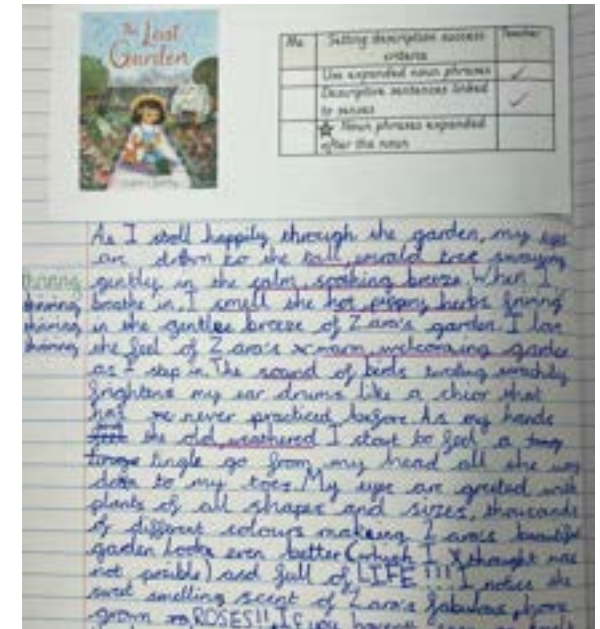 The Last
Garden
Me
Setting description success
criteria
Teacher
Use expanded noun phrases
Descriptive sentences linked
to senses
Noun phrases expanded
after the noun
As I stroll happily through the garden, my eyes
are drawn to the tall, emerald tree swaying
gently in the calm, soothing breeze. When I
breathe in, I smell the hot, peppery herbs
in the gentle breeze of Zara's garden. I love
the feel of Zara's warm, welcoming garden
as I step in. The sound of birds
frightens my ear drums like a choir that
never practiced before. As my hands
the old, weathered I start to feel a
tingle go from my head all the way
down to my toes. My eyes are greeted with
plants of all shapes and sizes, thousands
of different colours making Zara's beautiful
garden looks even better (which I thought was
not posible) and full of LIFE!!! I notice the
sweet smelling scent of Zara's fabulous, home
grown ROSES!! If you